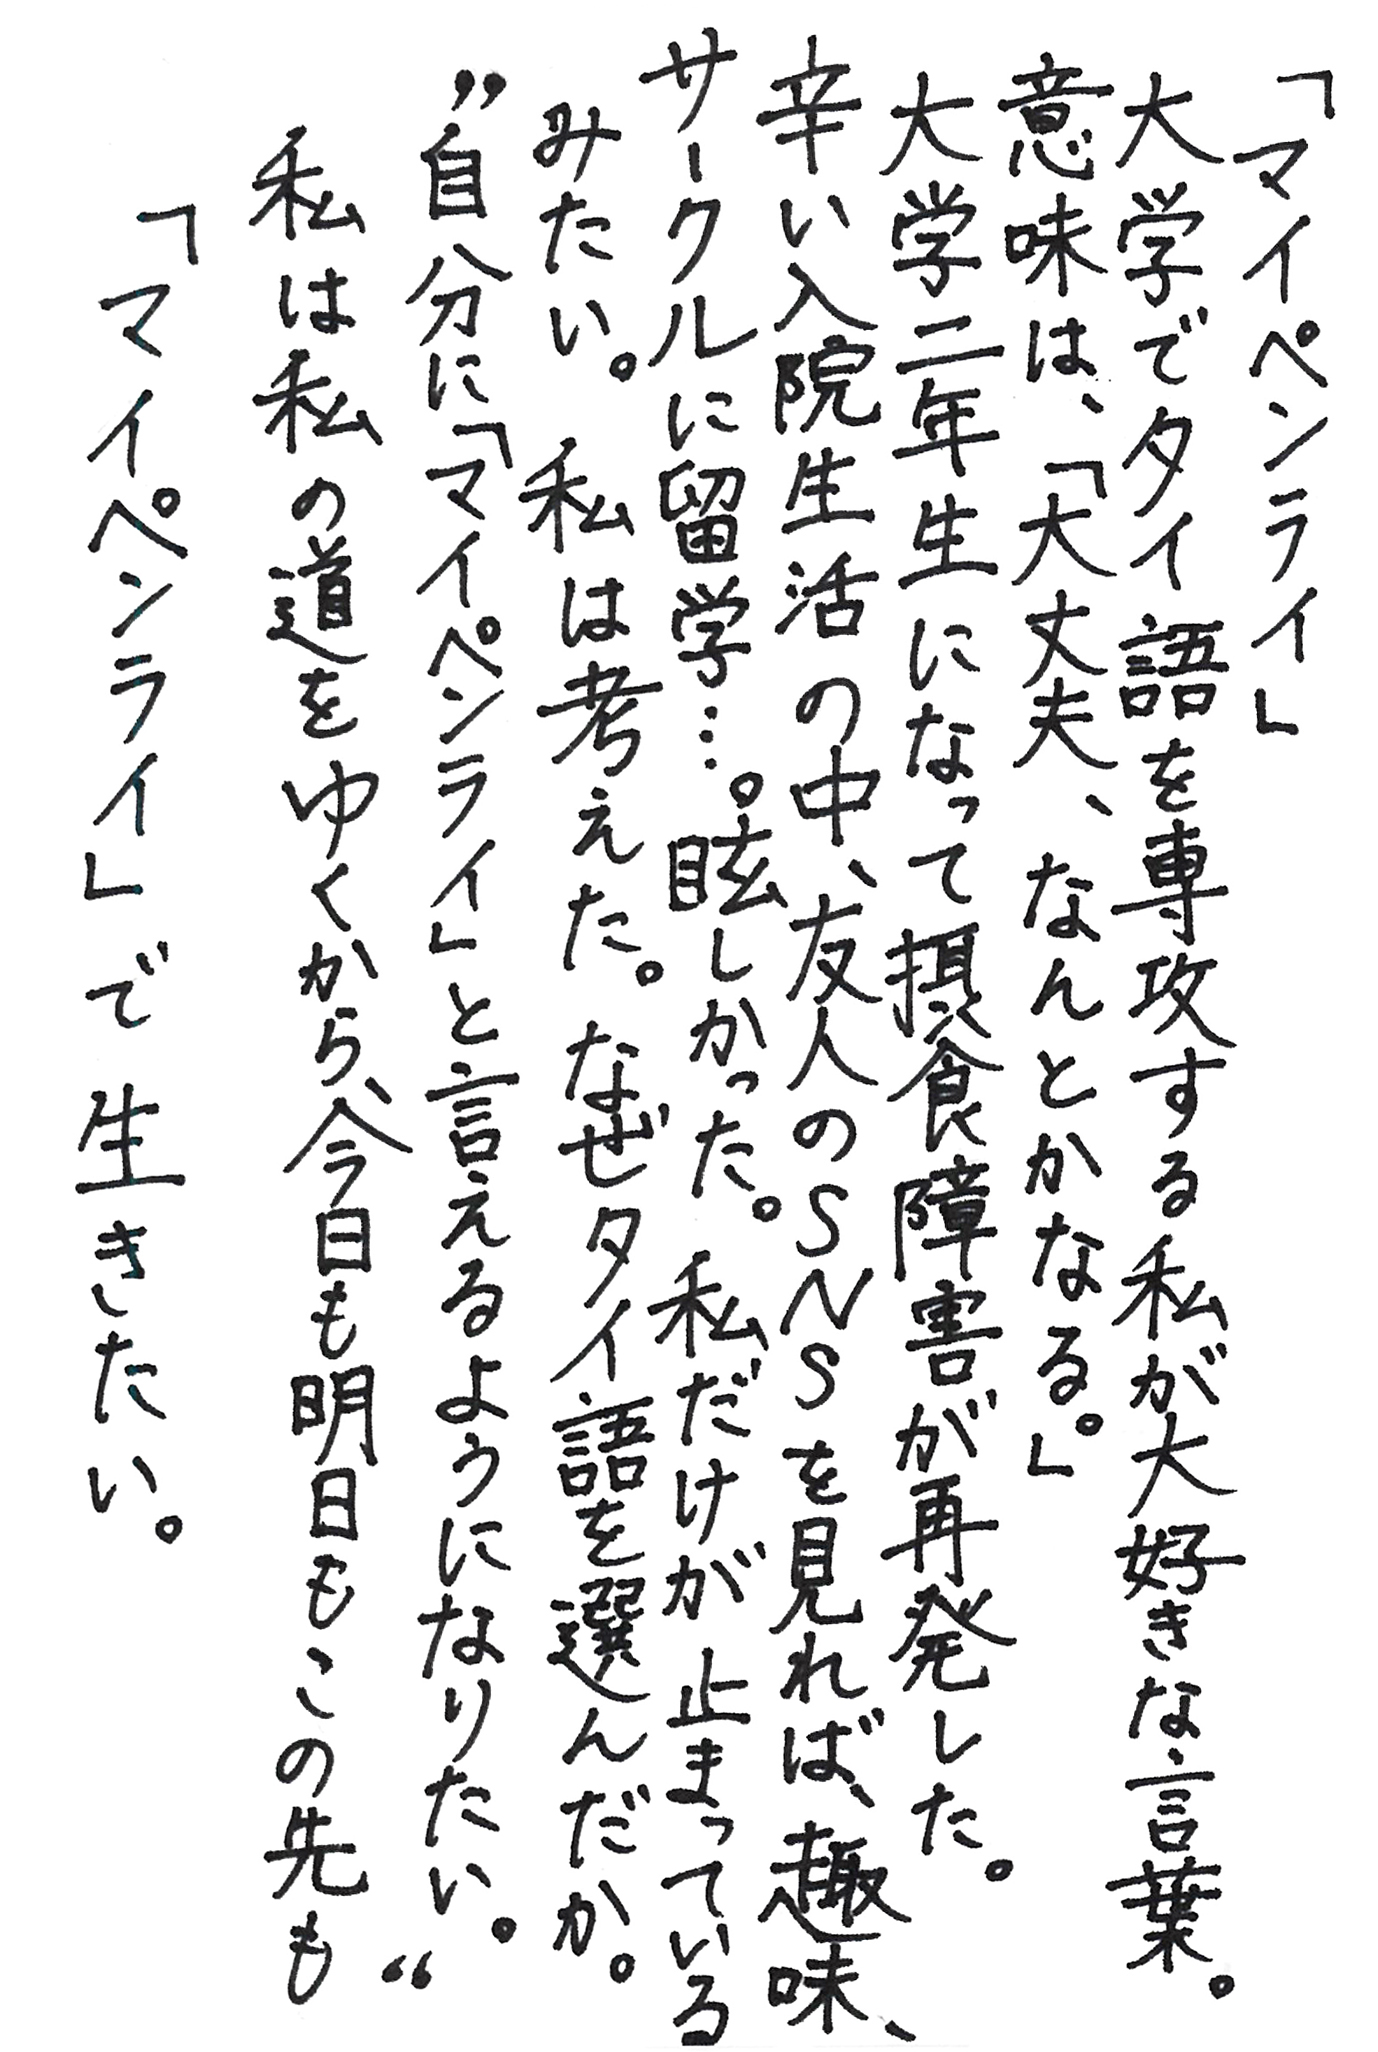 「マイペンライ」
大学でタイ語を専攻する私が大好きな言葉。
意味は、「大丈夫、なんとかなる。」
大学二年生になって摂食障害が再発した。
辛い入院生活の中、友人のSNSを見れば、趣味、
サークルに留学…。眩しかった。私だけが止まっている
みたい。私は考えた。なぜタイ語を選んだか。
”自分に「マイペンライ」と言えるようになりたい。“
私は私の道をゆくから、今日も明日もこの先も
「マイペンライ」で生きたい。